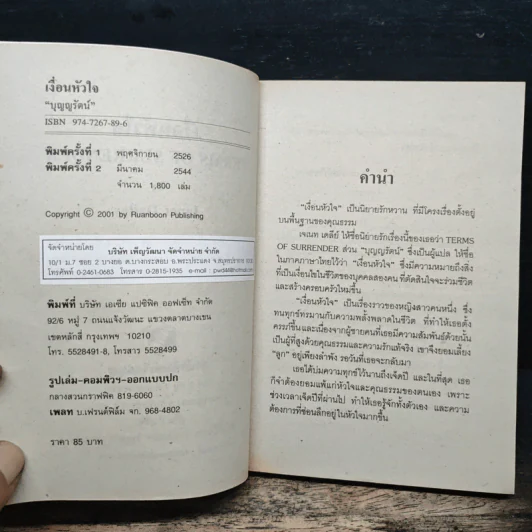 เงื่อนหัวใจ
"บุญญรัตน์"
ISBN 974-7267-89-6
พิมพ์ครั้งที่ 1 พฤศจิกายน 2526
พิมพ์ครั้งที่ 2 มีนาคม 2544
จำนวน 1,800 เล่ม
Copyright © 2001 by Ruanboon Publishing
จัดจำหน่ายโดย บริษัท เพ็ญวัฒนา จัดจำหน่าย จำกัด
10/1 ม.7 ซอย 2 บางกระสอบ ต.บางกระสอบ อ.พระประแดง จ.สมุทรปราการ
โทรศัพท์ 0-2461-0683 โทรสาร 0-2815-1935 e-mail :
พิมพ์ที่ บริษัท เอเชีย แปซิฟิค ออฟเซ็ท จำกัด
92/6 หมู่ 7 ถนนแจ้งวัฒนะ แขวงตลาดบางเขน
เขตหลักสี่ กรุงเทพฯ 10210
โทร. 5528491-8, โทรสาร 5528499
รูปเล่ม-คอมพิวฯ-ออกแบบปก
กลางสวนกราฟฟิค 819-6060
เพลท บ.เฟรนด์ฟิล์ม จก. 968-4802
ราคา 85 บาท
คำนำ
"เงื่อนหัวใจ" เป็นนิยายรักหวาน ที่มีโครงเรื่องตั้งอยู่
บนพื้นฐานของคุณธรรม
เจเนท เดลีย์ ให้ชื่อนิยายรักเรื่องนี้ของเธอว่า TERMS
OF SURRENDER ส่วน "บุญญรัตน์" ซึ่งเป็นผู้แปล ให้ชื่อ
ในภาคภาษาไทยไว้ว่า "เงื่อนหัวใจ" ซึ่งมีความหมายถึงสิ่ง
ที่เป็นเงื่อนไขในชีวิตของบุคคลสองคน ที่ตัดสินใจจะร่วมชีวิต
และสร้างครอบครัวใหม่ขึ้น
"เงื่อนหัวใจ" เป็นเรื่องราวของหญิงสาวคนหนึ่ง ซึ่ง
ทนทุกข์ทรมานกับความพลั้งพลาดในชีวิต ที่ทำให้เธอตั้ง
ครรภ์ขึ้นและเนื่องจากผู้ชายคนที่เธอมีความสัมพันธ์ด้วยนั้น
เป็นผู้ที่สูงด้วยคุณธรรมและความรักแท้จริง เขาจึงยอมเลี้ยง
"ลูก" อยู่เพียงลำพัง รอวันที่เธอจะกลับมา
เธอได้บ่มความทุกข์ไว้นานถึงเจ็ดปี และในที่สุด เธอ
ก็จำต้องยอมแพ้แก่หัวใจและคุณธรรมของตนเอง เพราะ
ช่วงเวลาเจ็ดปีที่ผ่านไป ทำให้เธอรู้จักทั้งตัวเอง และความ
ต้องการที่ซ่อนลึกอยู่ในหัวใจมากขึ้น